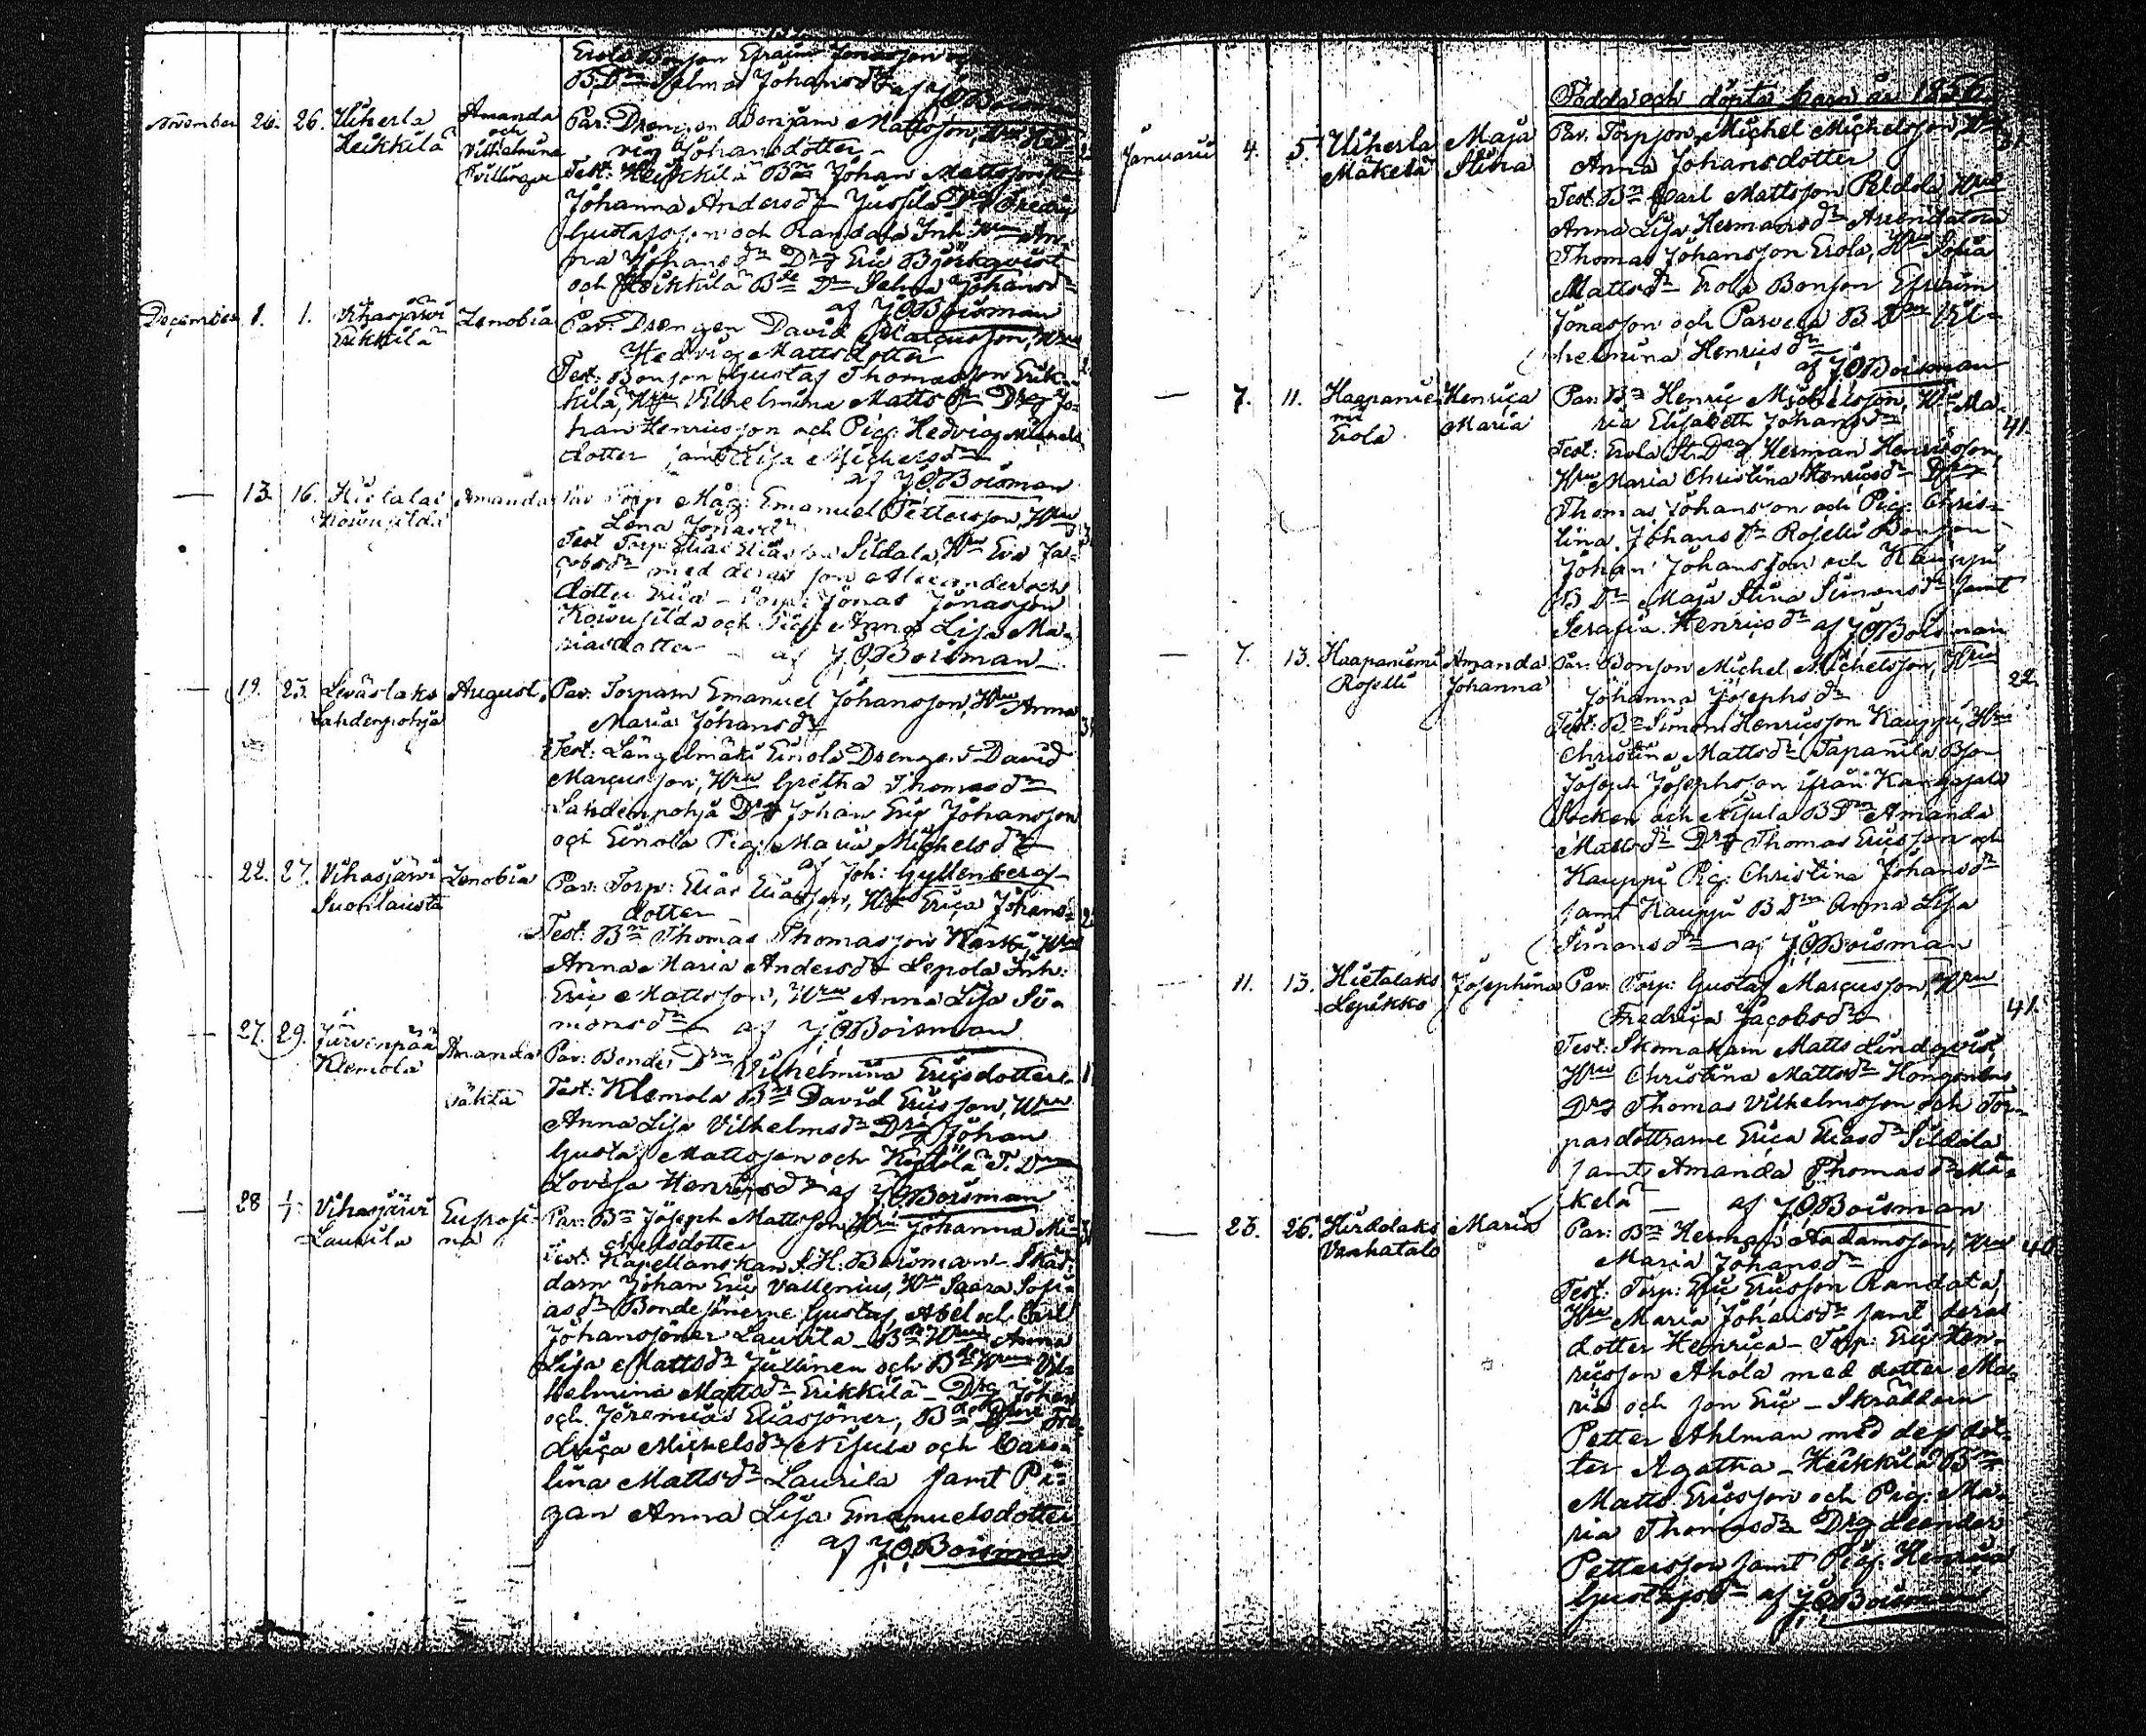 Erola Bonson Efraim Jonasson
B. Dn Selma Johansdr
af J O Boisman
November 26. 26. Uiherla Heikkilä Amanda och Vilhelmina Tvillingar
Par: Drengen Benjam Mattsson,
vig Johansdotter
Test: Heikkilä Bn Johan Mattsson
Johanna Andersdr Jussila Drg Fredric
Gustafsson och Randala Inh:
na Johansdr Drg Eric Björkqvist
och Heikkilä Bde Dr Selma Johansdr
af J O Boisman
December 1. 1. Vihasjärvi Erikkilä Zenobia
Par: Drengen David Marcusson, Hru
Hedvig Mattsdotter
Test: Bonson Gustaf Thomasson Erik-
kilä, Hru Vilhelmina Mattsdr Drg Jo-
han Henricsson och Pig: Hedvig Michels
dotter samt Lisa Michelsdr
af J O Boisman
13. 16. Hietalax Amanda
Par Torp Måg: Emanuel Pettersson, Hru
Lena Jonasdr
Test Torp: Elias Eliasson Sildala, Hru Eva Ja-
cobsdr med deras son Alexander och
dotter Erica - Torp: Jonas Jonasson
och Pig: Anna Lisa Ma-
riasdotter af J O Boisman
19. 25. Leväslaks Lahdenpohja August.
Par: Torparn Emanuel Johansson, Hru Anna
Maria Johansdr
Test: Längelmäki Einola Drengen David
Marcusson, Hru Gretha Thomasdr
Lahdenpohja Drg Johan Eric Johansson
och Einola Pig: Maria Michelsdr
af Joh: Gyllenberg
22. 27. Vihasjärvi Suonlaiusta Zenobia
Par: Torp: Elias Eliasson, Hru Erica Johans-
dotter
Test: Bn Thomas Thomasson Karhi, Hru
Anna Maria Andersdr Lepola Inh:
Eric Mattsson, Hru Anna Lisa Si-
monsdr af J O Boisman
27. 29. Järvenpää Klemola Amanda oäkta
Par: Bonde Drn Vilhelmina Ericsdotter
Test: Klemola Bn David Ericsson, Hru
Anna Lisa Vilhelmsdr Drg Johan
Gustaf Mattsson och T. Dr
Lovisa Henricsdr af J O Boisman
28 1/1 Vihasjärvi Laurila Eufrosi-
na
Par: Bn Joseph Mattsson, Hru Johanna Mi-
chelsdotter
Test: Kapellanskan S. H. Boisman - Skäd-
darn Johan Eric Vallenius, Hru Saara Sofi-
asdr Bondesönerne Gustaf, Abel och Carl
Johanssöner Laurila - Bde Hru Anna
Lisa Mattsdr Jullinen och Bde Hru Vil-
helmina Mattsdr Erikkilä - Drg Johan
och Jeremias Eliassöner, Fre-
drica Michelsdr Nisula och Caro-
lina Mattsdr Laurila samt Pi-
gan Anna Lisa Emanuelsdotter
af J O Boisman
Födda och döpta barn år 1856.
Januarii 4. 5. Uiherla Mäkelä Maja Stina
Par. Torpson Michel Michelsson, Hru
Anna Johansdotter
Test: Bn Carl Mattsson Peldola, Hru
Anna Lisa Hermansdr Arrendatorn
Thomas Johansson Erola, Hru Sofia
Mattsdr Erola Bonson Efraim
Jonasson och Parvela B Drn Vil-
helmina Henricsdr
af J O Boisman
7. 11. Haapanie-
mi Erola Henrica Maria
Par: Bn Henric Michelsson, Hru Ma-
ria Elisabeth Johansdr 41.
Test: Erola Drg Herman Henricsson,
Hru Maria Christina Henricsdr Drg
Thomas Johansson och Pig: Chris-
tina Johansdr Roselli Bonson
Johan Johansson och Kauppi
B Dr Maja Stina Simonsdr samt
Serafia Henricsdr af J O Boisman
7. 13. Haapaniemi Roselli Amanda Johanna
Par. Bonson Michel Michelsson, Hru
Johanna Josephsdr 22.
Test: Bn Simon Henricsson Kauppi, Hru
Christina Mattsdr Tapanila Bson
Joseph Josephsson ifrån Kangasala
Socken och Nisula B Drn Amanda
Mattsdr Drg Thomas Ericsson och
Kauppi Pig: Christina Johansdr
samt Kauppi B Drn Anna Lisa
Simonsdr af J O Boisman
11. 13. Hietalaks Lepikko Josephina
Par. Torp: Gustaf Marcusson, Hru
Fredrica Jacobsdr 41.
Test: Skomakarn Matts Lindqvist,
Hru Christina Mattsdr
Drg Thomas Vilhelmsson och Tor-
pardöttrarne Erica Eliasdr Sildala
samt Amanda Thomasdr Mä-
kelä af J O Boisman
23. 26. Hirdolaks Vrahatalo Maria
Par: Bn Herman Aadamsson, Hru 40.
Maria Johansdr
Test: Torp: Eric Ericsson Randala,
Hru Maria Johansdr samt deras
dotter Henrica - Torp: Eric Hen-
ricsson Ahola med dotter Ma-
ria och son Eric - Skräddarn
Petter Ahlman med dess dot-
ter Agatha - Heikkilä Bn
Matts Ericsson och Pig: Ma-
ria Thomasdr Drg Leander
Pettersson samt Pig: Henrica
Gustafsdr af J O Boisman